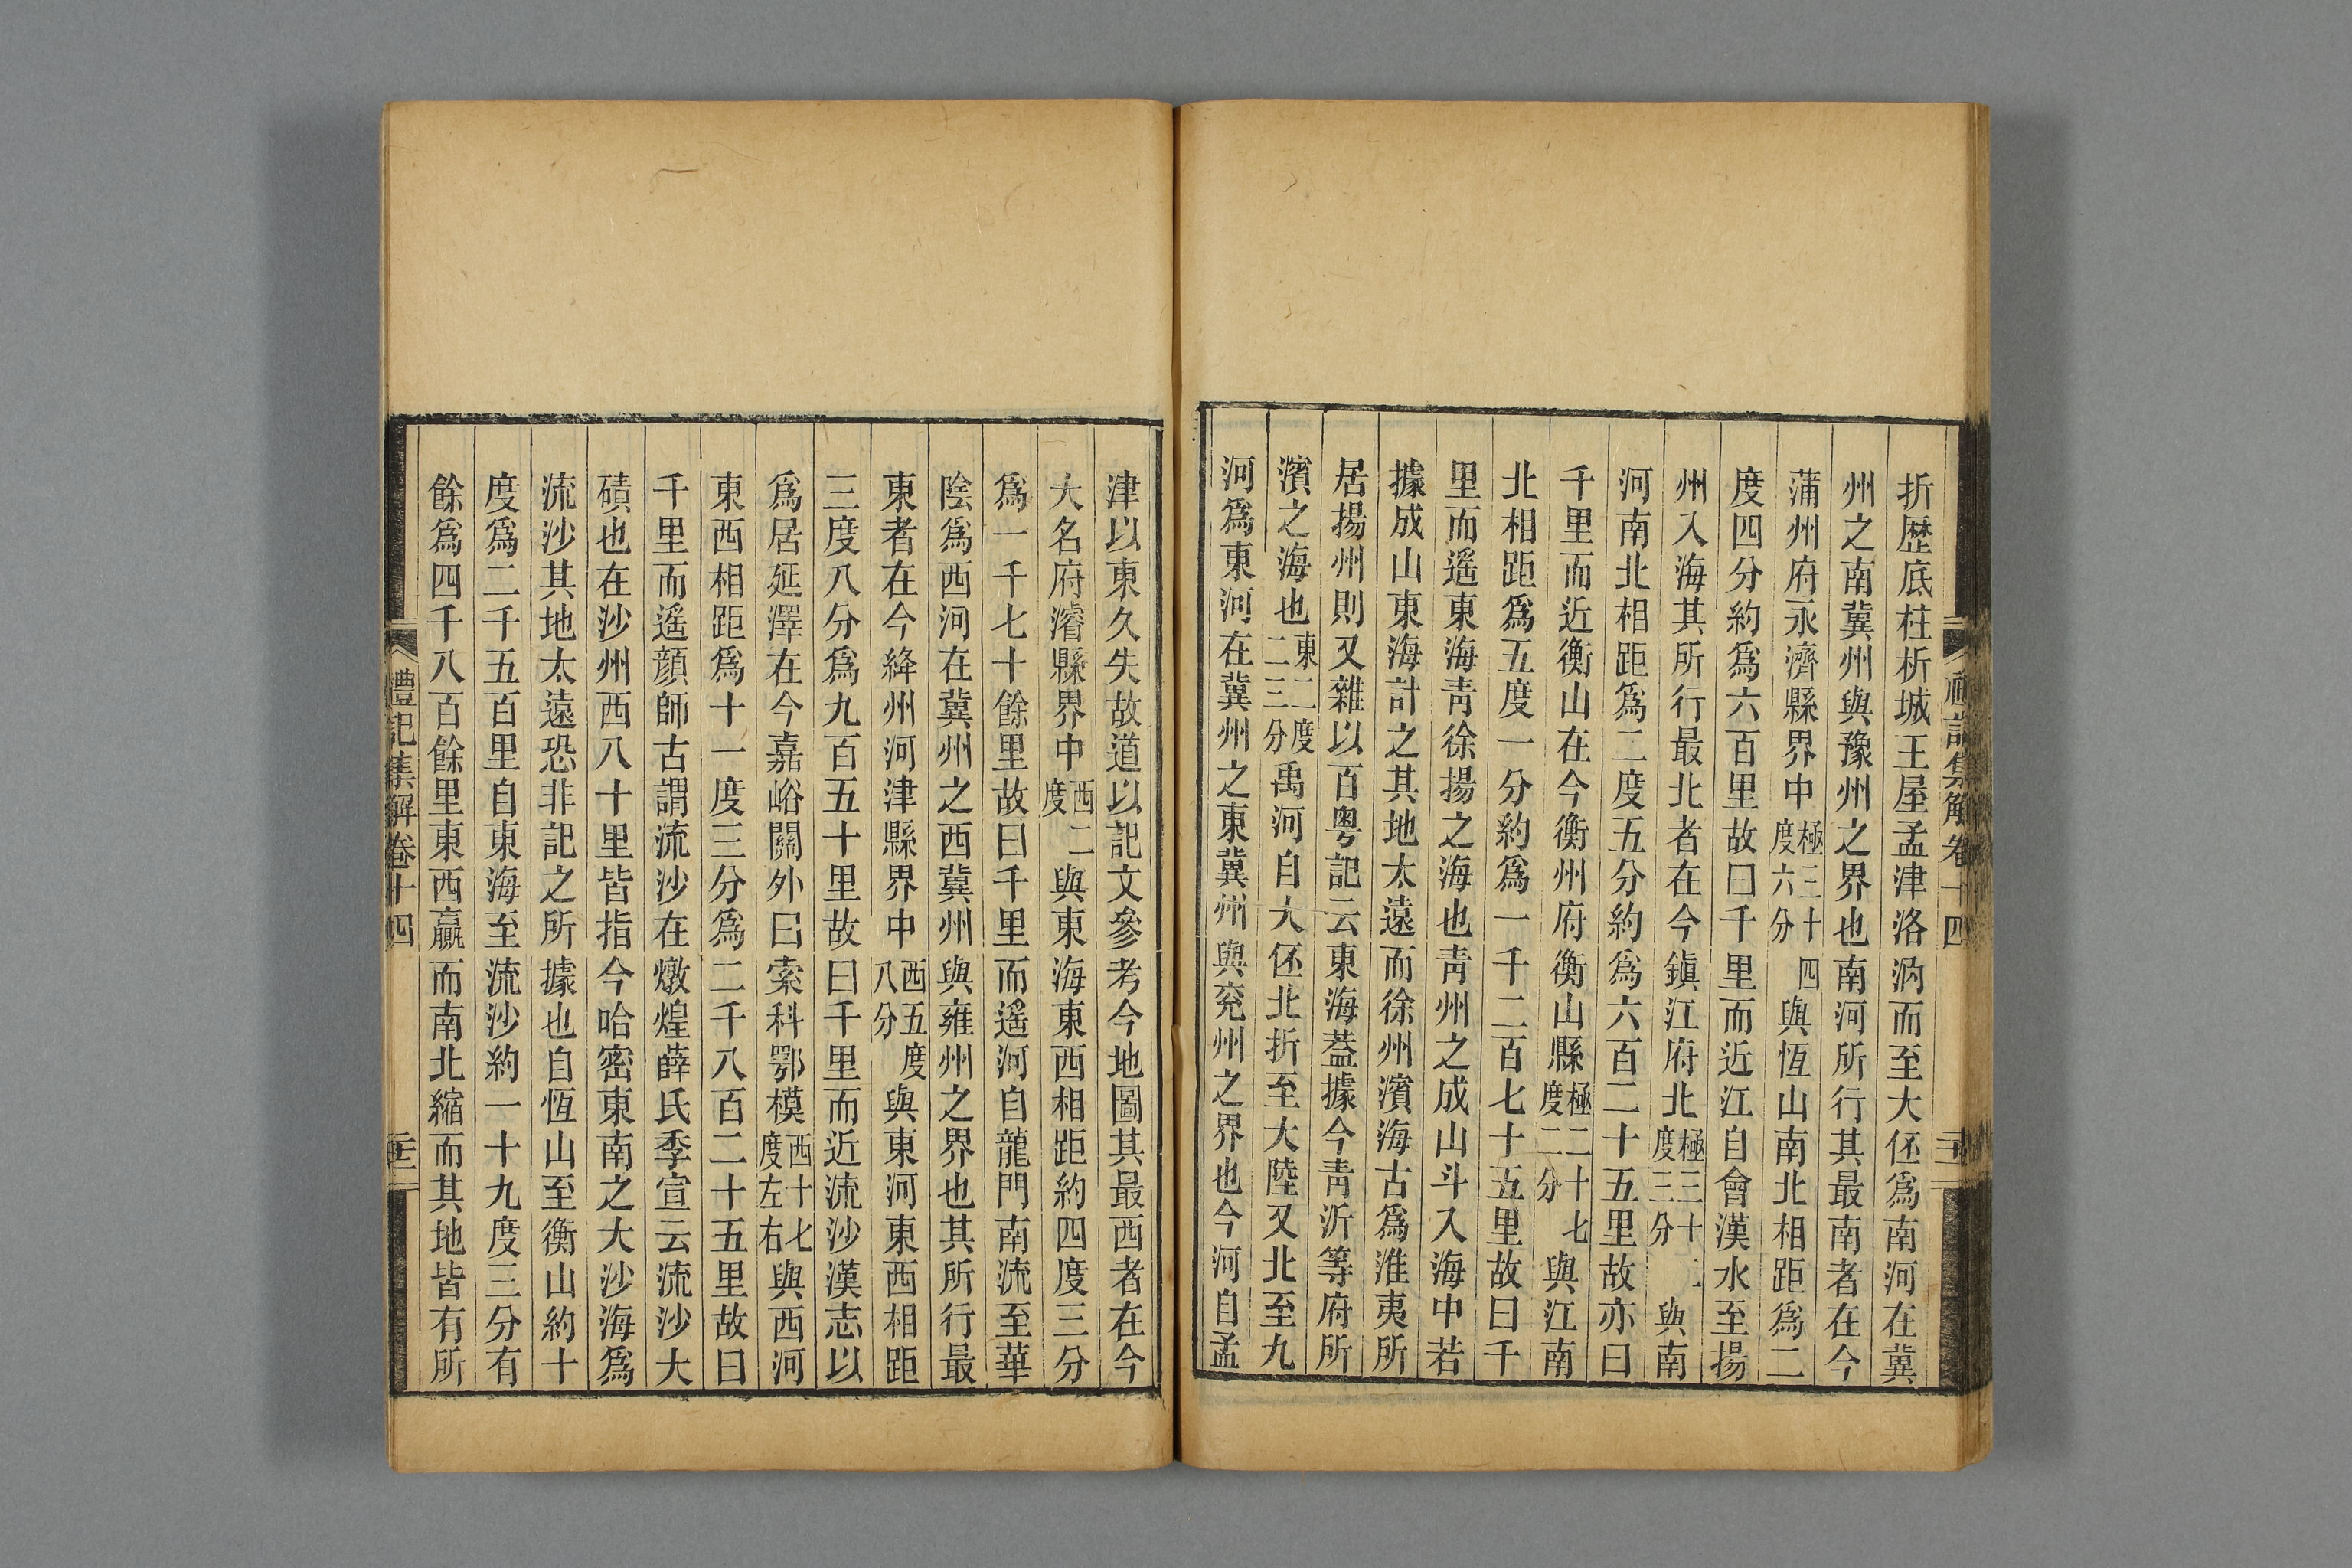 折歷底柱析城王屋孟津洛汭而至大伾爲南河在冀
州之南冀州與豫州之界也南河所行其最南者在今
蒲州府永濟縣界中極三十四度六分與恆山南北相距爲二
度四分約爲六百里故曰千里而近江自會漢水至揚
州入海其所行最北者在今鎮江府北極三十二度三分與南
河南北相距爲二度五分約爲六百二十五里故亦曰
千里而近衡山在今衡州府衡山縣極二十七度二分與江南
北相距爲五度一分約爲一千二百七十五里故曰千
里而遙東海靑徐揚之海也靑州之成山斗入海中若
據成山東海計之其地太遠而徐州濱海古爲淮夷所
居揚州則又雜以百粤記云東海蓋據今靑沂等府所
濱之海也東二度二三分禹河自大伾北折至大陸又北至九
河爲東河在冀州之東冀州與兗州之界也今河自孟
禮記集解卷十四
津以東久失故道以記文參考今地圖其最西者在今
大名府濬縣界中西二度與東海東西相距約四度三分
爲一千七十餘里故曰千里而遙河自龍門南流至華
陰爲西河在冀州之西冀州與雍州之界也其所行最
東者在今絳州河津縣界中西五度八分與東河東西相距
三度八分爲九百五十里故曰千里而近流沙漢志以
爲居延澤在今嘉峪關外曰索科鄂模西十七度左右與西河
東西相距爲十一度三分爲二千八百二十五里故曰
千里而遙顏師古謂流沙在燉煌薛氏季宣云流沙大
磧也在沙州西八十里皆指今哈密東南之大沙海爲
流沙其地太遠恐非記之所據也自恆山至衡山約十
度爲二千五百里自東海至流沙約一十九度三分有
餘爲四千八百餘里東西贏而南北縮而其地皆有所
禮記集解卷十四